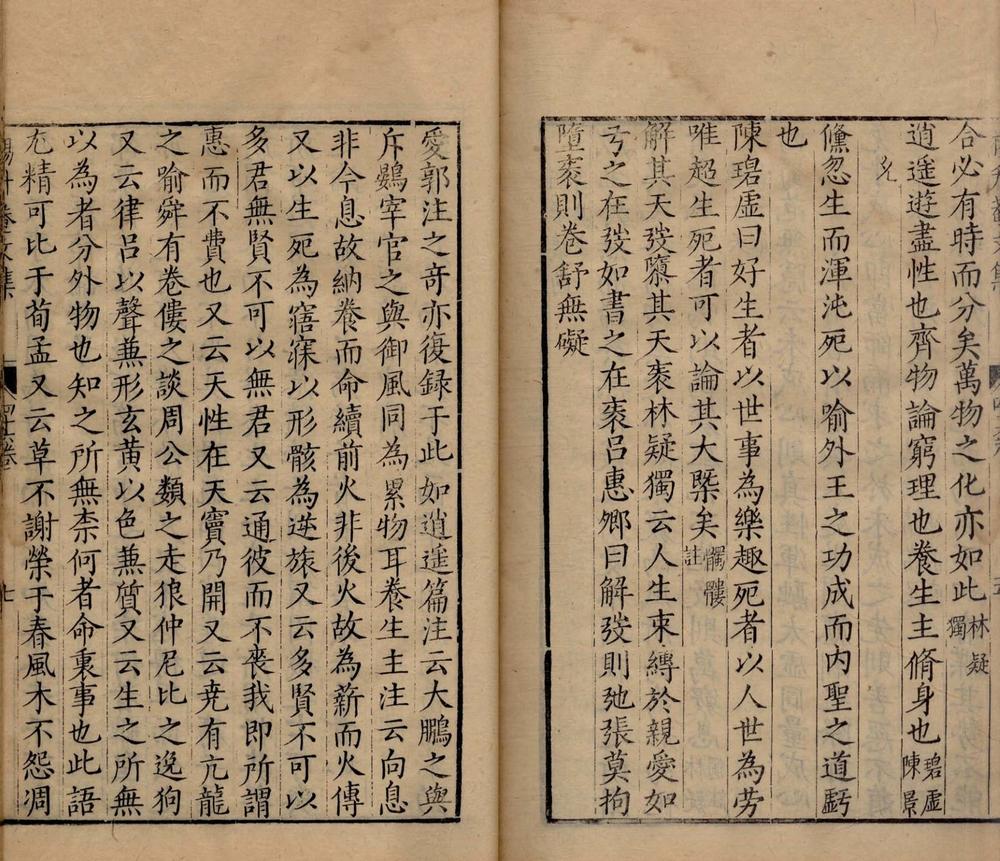 合必有時而分矣萬物之化亦如此林疑獨
逍遥遊盡性也齊物論窮理也養生主脩身也陳碧虛景
元
儵忽生而渾沌死以喻外王之功成而内聖之道虧
也
陳碧虛曰好生者以世事為樂趣死者以人世為勞
唯超生死者可以論其大槩矣髑髏註
解其天弢隳其天袠林疑獨云人生束縛於親愛如
弓之在弢如書之在袠吕惠卿曰解弢則弛張莫拘
墮袠則卷舒無礙
愛郭注之奇亦復録于此如逍遥篇注云大鵬之與
斥鷃宰官之與御風同為累物耳養生主注云向息
非今息故納養而命續前火非後火故為薪而火傳
又以生死為寤寐以形骸為逆旅又云多賢不可以
多君無賢不可以無君又云通彼而不喪我即所謂
惠而不費也又云天性在天竇乃開又云堯有亢龍
之喻舜有卷僂之談周公類之走狼仲尼比之逸狗
又云律吕以聲兼形玄黄以色兼質又云生之所無
以為者分外物也知之所無柰何者命表事也此語
尤精可比于荀孟又云草不謝榮于春風木不怨凋